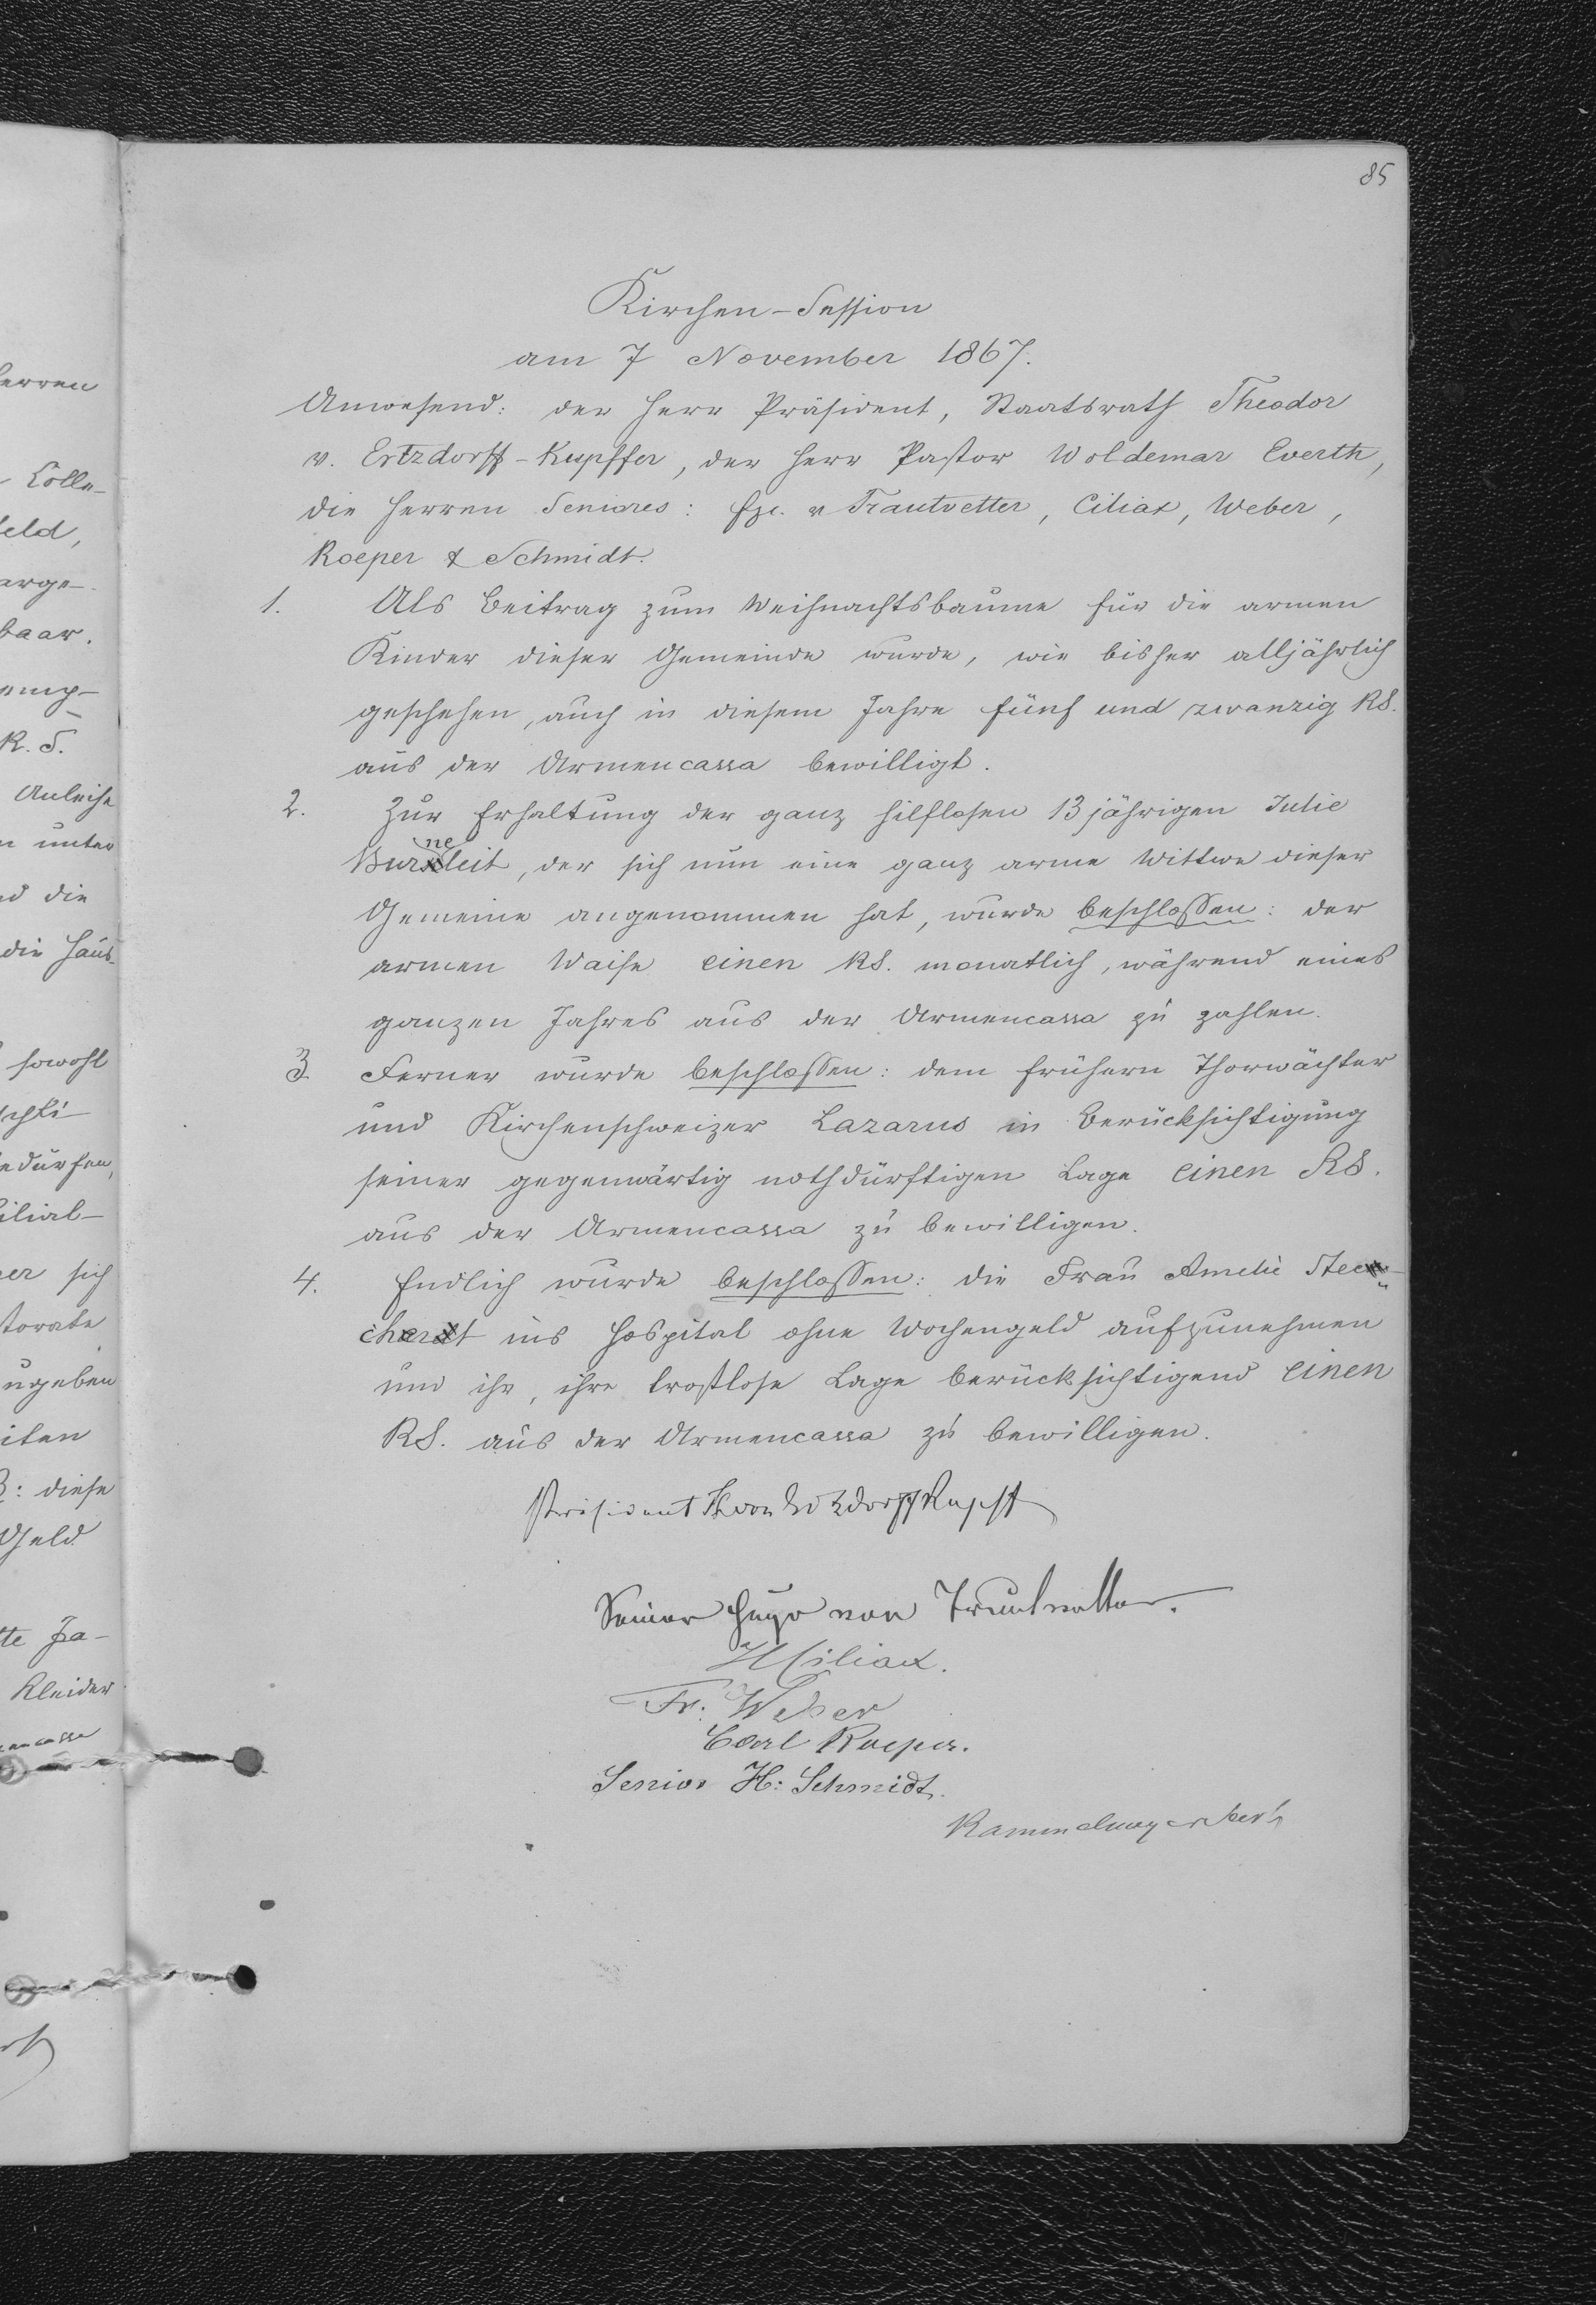 85
Kirchen-Session
am 7 November 1867.
Anwesend: der Herr Präsident, Staatsrath Theodor
v. Ertzdorff-Kupffer, der Herr Pastor Woldemar Everth,
die Herren Seniores: Exc. v Trautvetter, Ciliax, Weber,
Roeper & Schmidt.
1. Als Beitrag zum Weihnachtsbaume für die armen
Kinder dieser Gemeinde wurde, wie bisher alljährlich
geschehen, auch in diesem Jahre fünf und zwanzig RS.
aus der Armencassa bewilligt.
2. Zur Erhaltung der ganz hilflosen 13 jährigen Julie
Burneleit, der sich nun eine ganz arme Wittwe dieser
Gemeine angenommen hat, wurde beschlossen: der
armen Waise einen RS. monatlich, während eines
ganzen Jahres aus der Armencassa zu zahlen.
3. Ferner wurde beschlossen: dem frühern Thorwächter
und Kirchenschweizer Lazarus in Berücksichtigung
seiner gegenwärtig nothdürftigen Lage einen RS.
aus der Armencassa zu bewilligen.
4. Endlich wurde beschlossen: die Frau Amelie Stec-
chert ins Hospital ohne Wochengeld aufzunehmen
und ihr, ihre trostlose Lage berücksichtigend einen
RS. aus der Armencassa zu bewilligen.
Präsident Th von Ertzdorff Kupff
Senior Hugo von Trautvetter.
Ciliax.
Fr: Weber
Carl Roeper.
Senior H: Schmidt.
herren
Colle-
feld,
arge-
baar.
R. S.
Anleihe
unter
die
die Haus-
sowohl
edürfen,
ilial-
sich
torate
ugeben
iten
: diese
Geld
Kleider